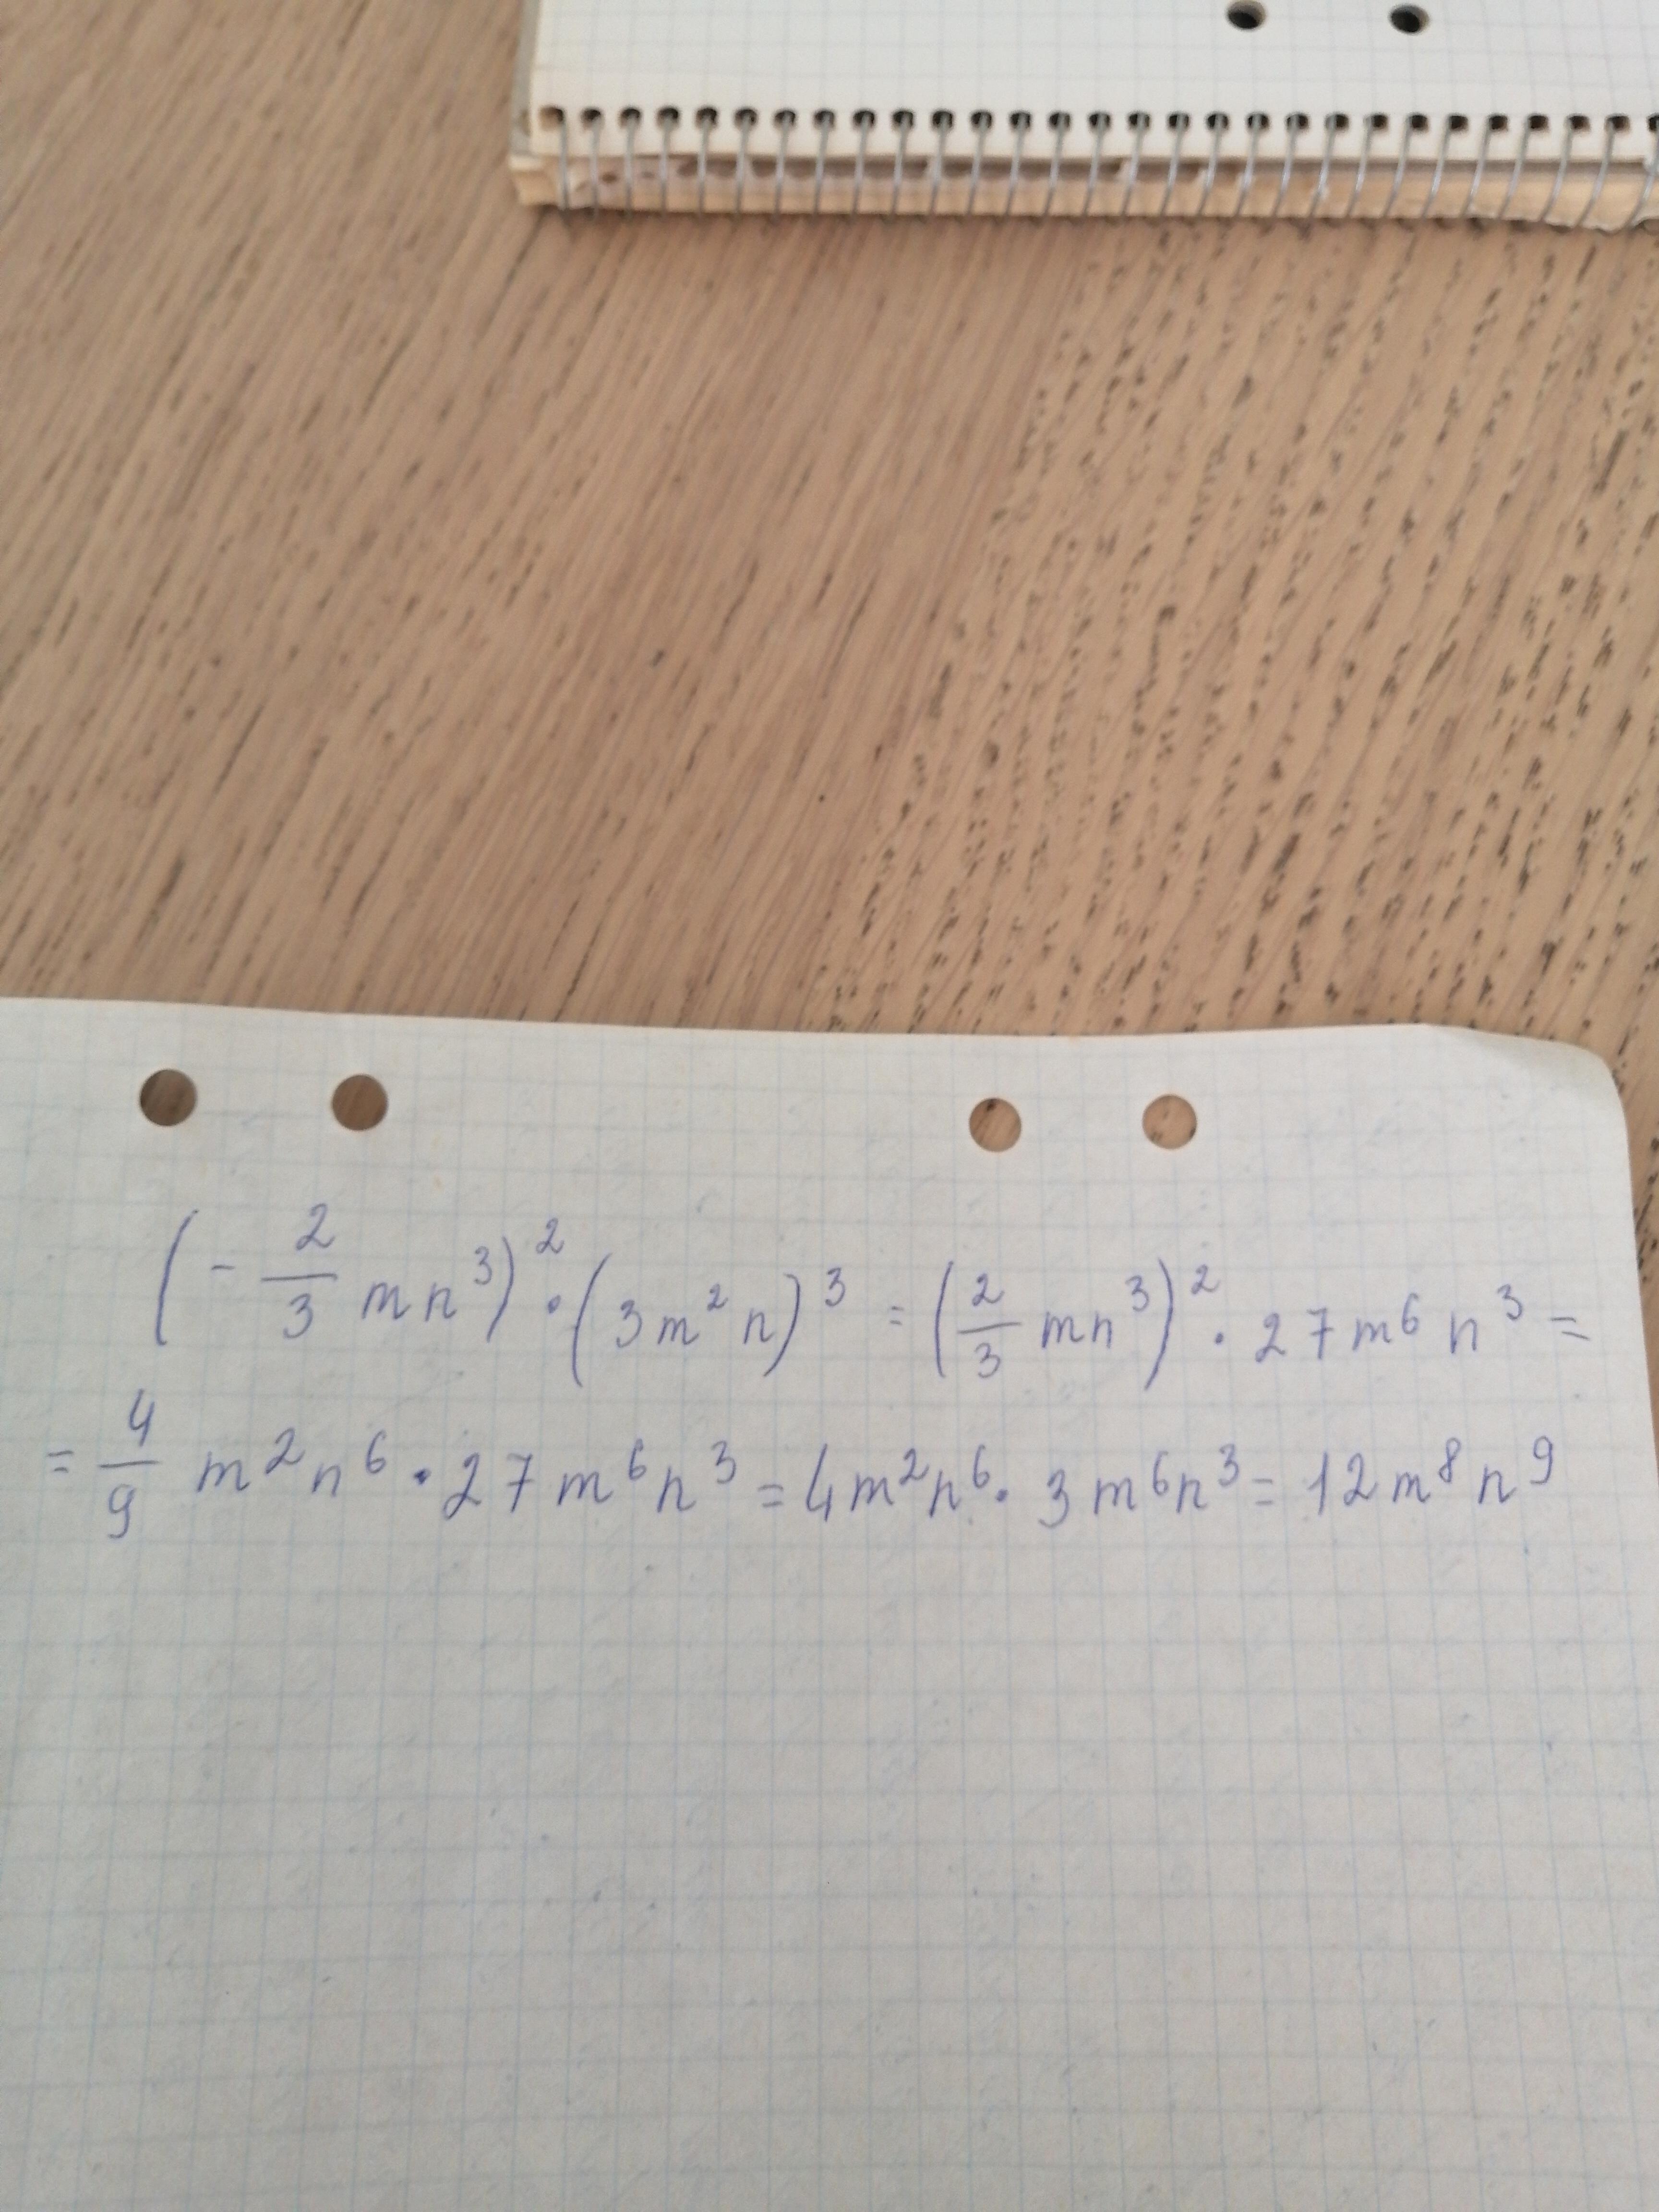 (-2/3 mn³)² · (3m²n)³ = (2/3 mn³)² · 27m⁶n³ =
= 4/9 m²n⁶ · 27m⁶n³ = 4m²n⁶ · 3m⁶n³ = 12m⁸n⁹